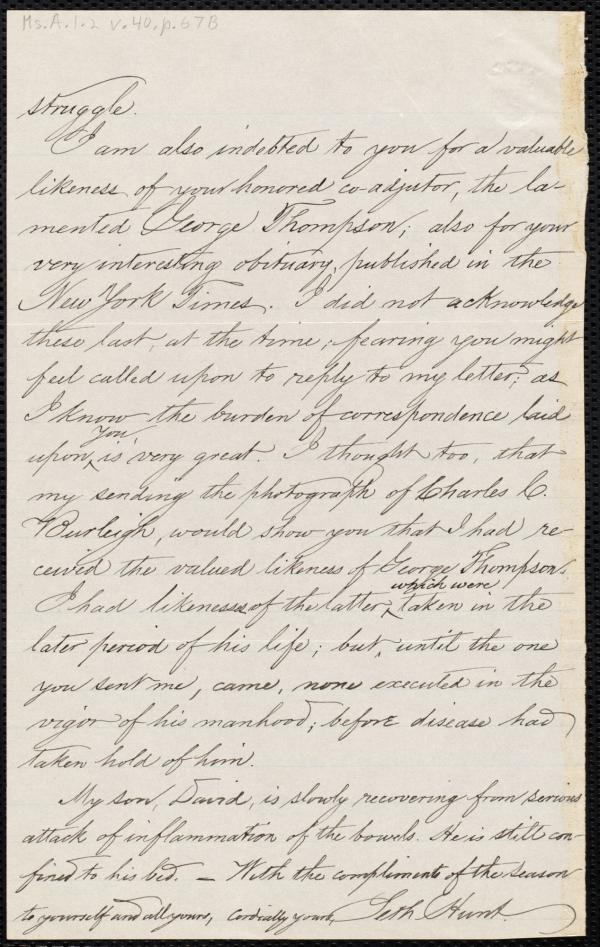 Ms.A.1.2 v.40, p.67B
struggle.
I am also indebted to you for a valuable
likeness of your honored co-adjutor, the la-
mented George Thompson; also for your
very interesting obituary, published in the
New York Times. I did not acknowledge
these last, at the time; fearing you might
feel called upon to reply to my letter; as
I know the burden of correspondence laid
you
upon ^ is very great. I thought too, that
my sending the photograph of Charles C.
Burleigh, would show you that I had re-
ceived the valued likeness of George Thompson.
which were
I had likenesses of the latter ^ taken in the
later period of his life; but, until the one
you sent me, came, none executed in the
vigor of his manhood; before disease had
taken hold of him.
My son, David, is slowly recovering from serious
attack of inflammation of the bowels. He is still con-
fined to his bed. – With the compliments of the season
to yourself and all yours, Cordially yours, Seth Hunt.